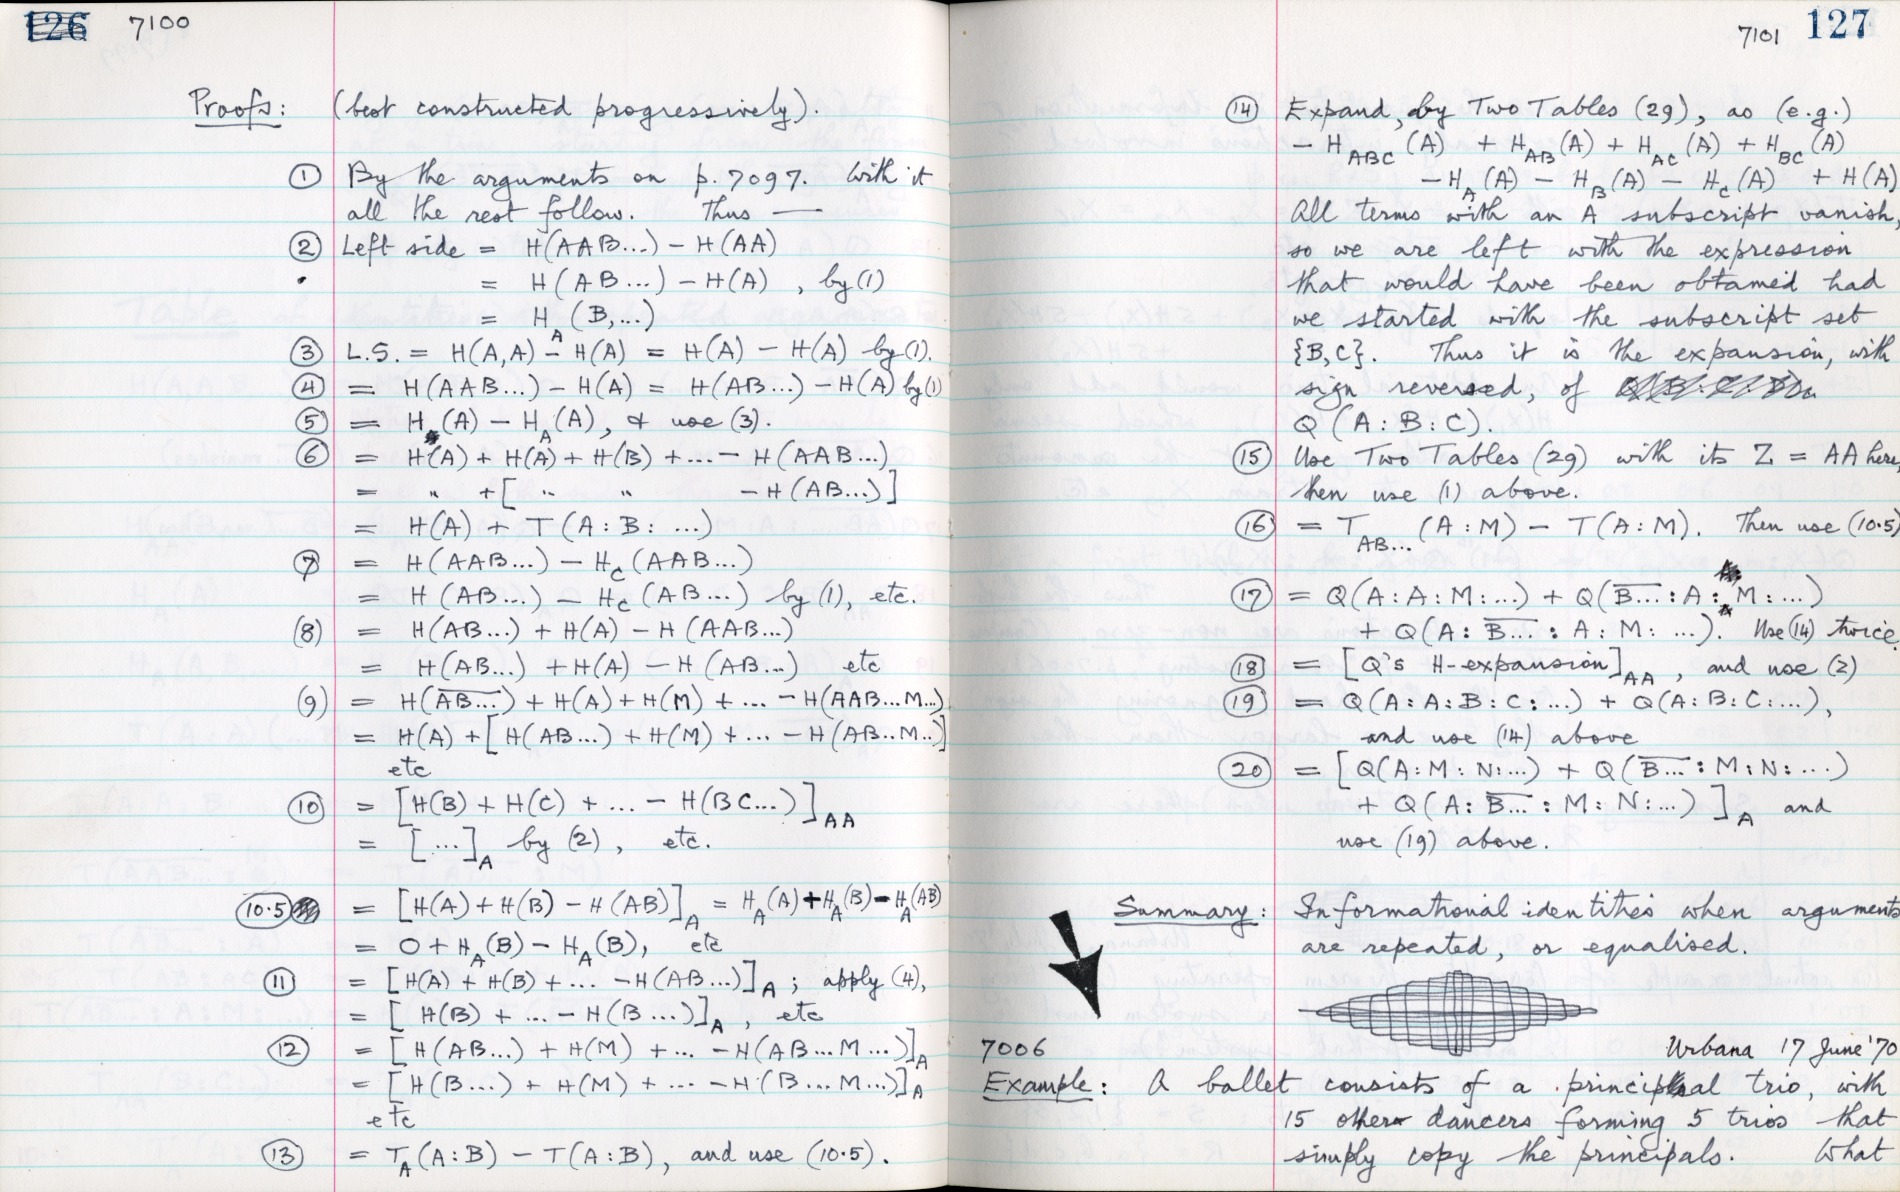 126 7100
Proofs: (best constructed progressively).
① By the arguments on p.7097. With it
all the rest follow. Thus —
② Left side = H(AAB...) − H(AA)
= H(AB...) − H(A) , by (1)
= H_A(B,...)
③ L.S. = H(A,A) − H(A) = H(A) − H(A) by (1).
④ = H(AAB...) − H(A) = H(AB...) − H(A) by (1)
⑤ = H(A) − H_A(A), & use (3).
⑥ = H(A) + H(A) + H(B) + ... − H(AAB...)
= " + [ " " − H(AB...)]
= H(A) + T(A:B: ...)
⑦ = H(AAB...) − H_C(AAB...)
= H(AB...) − H_C(AB...) by (1), etc.
(8) = H(AB...) + H(A) − H(AAB...)
= H(AB...) + H(A) − H(AB...) etc
(9) = H(A̅B̅.̅.̅.̅) + H(A) + H(M) + ... − H(AAB...M...)
= H(A) + [H(AB...) + H(M) + ... − H(AB..M..)]
etc
⑩ = [H(B) + H(C) + ... − H(BC...)]_AA
= [...]_A by (2), etc.
(10.5) = [H(A) + H(B) − H(AB)]_A = H_A(A) + H_A(B) − H_A(AB)
= 0 + H_A(B) − H_A(B), etc
⑪ = [H(A) + H(B) + ... − H(AB...)]_A ; apply (4),
= [H(B) + ... − H(B...)]_A , etc
⑫ = [H(AB...) + H(M) + ... − H(AB...M...)]_A
= [H(B...) + H(M) + ... − H(B...M...)]_A
etc
⑬ = T_A(A:B) − T(A:B), and use (10.5).
7101 127
⑭ Expand, by Two Tables (29), as (e.g.)
− H_ABC(A) + H_AB(A) + H_AC(A) + H_BC(A)
− H_A(A) − H_B(A) − H_C(A) + H(A)
All terms with an A subscript vanish,
so we are left with the expression
that would have been obtained had
we started with the subscript set
{B,C}. Thus it is the expansion, with
sign reversed, of
Q(A:B:C).
⑮ Use Two Tables (29) with its Z = AA here,
then use (1) above.
⑯ = T_AB...(A:M) − T(A:M). Then use (10.5)
⑰ = Q(A:A:M:...) + Q(B̅.̅.̅.̅:A:M:...)
+ Q(A:B̅.̅.̅.̅:A:M:...). Use (14) twice.
⑱ = [Q's H-expansion]_AA , and use (2)
⑲ = Q(A:A:B:C:...) + Q(A:B:C:...),
and use (14) above
⑳ = [Q(A:M:N:...) + Q(B̅.̅.̅.̅:M:N:...)
+ Q(A:B̅.̅.̅.̅:M:N:...)]_A and
use (19) above.
Summary: Informational identities when arguments
are repeated, or equalised.
7006 Urbana 17 June '70
Example: A ballet consists of a principal trio, with
15 other dancers forming 5 trios that
simply copy the principals. What